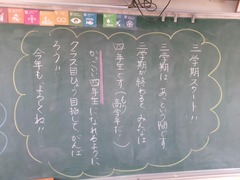 三学期スタート!!
三学期は あっという間です。
三学期が終わると、みなは
四年生です(もう高学年だ!)
かっこいい四年生になれるように
クラス目ひょう目指して、がんば
ろう!!
今年も よろしくね!!